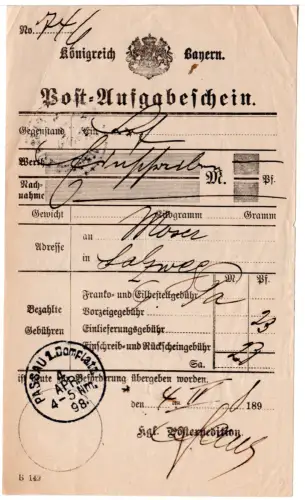 No. 746
Königreich Bayern.
Post-Aufgabeschein.
Gegenstand Ein
Werth M. Pf.
Nachnahme
Gewicht Kilogramm Gramm
an Moser
Adresse
in Salzweg
M. Pf.
Franko- und Eilbestellgebühr
Bezahlte Vorzeigegebühr 23
Gebühren Einlieferungsgebühr
Einschreib- und Rückscheingebühr
Sa. 23
ist heute zur Beförderung übergeben worden.
PASSAU 2. Domplatz
den 4 189
Kgl. Postexpedition
B 149